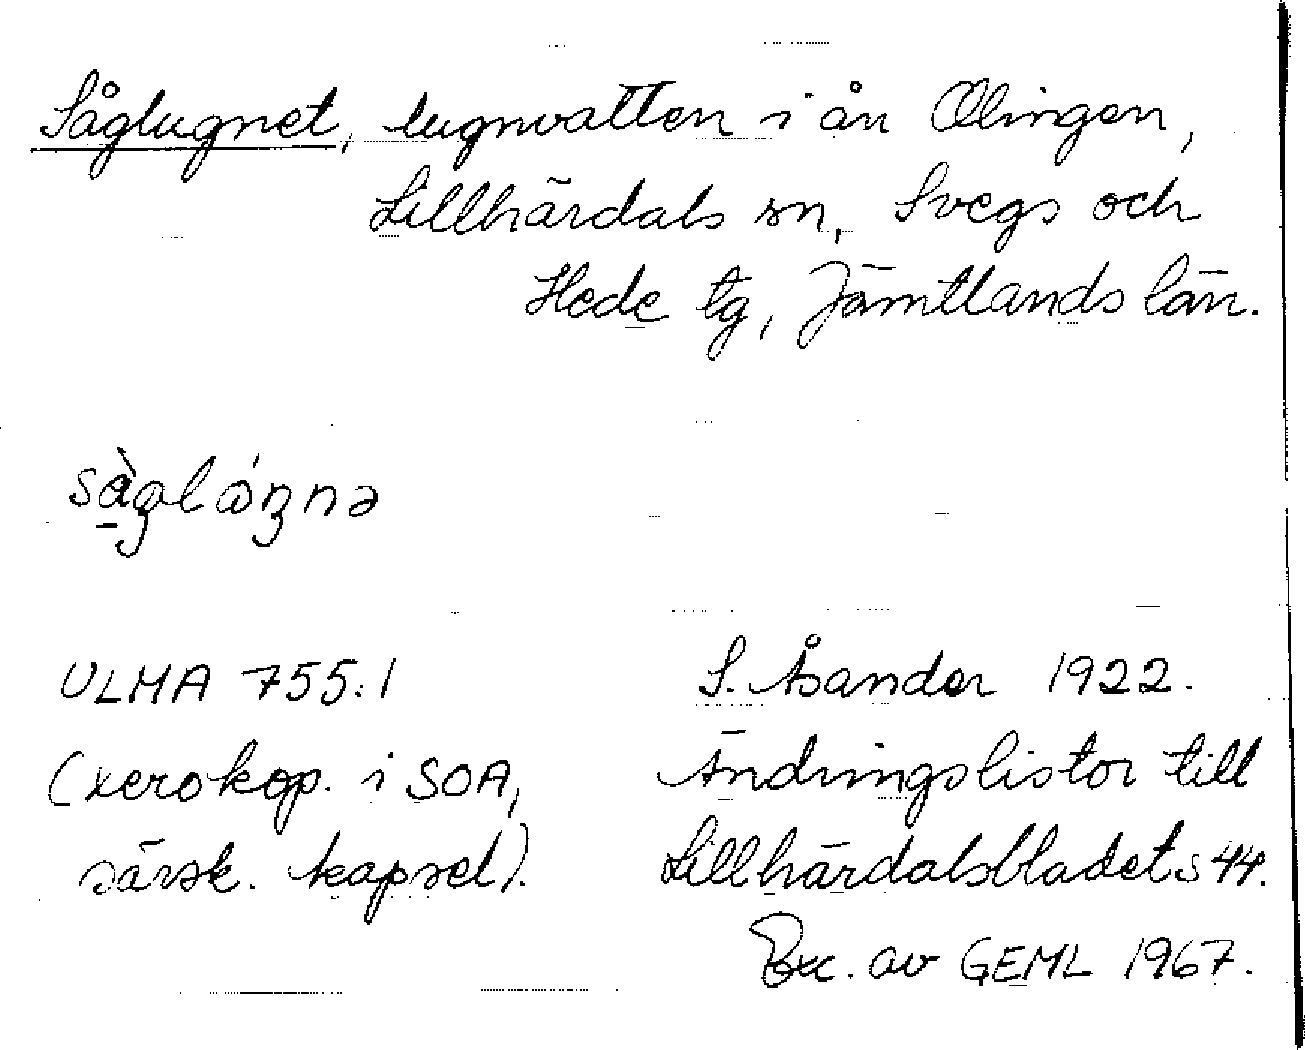 Såglugnet, lugnvatten i ån Olingen,
Lillhärdals sn, Svegs och
Hede tg, Jämtlands län.
ULMA 755:1
S. Åsander 1922.
(xerokop. i SOA,
Ändringslistor till
särsk. kapsel).
Lillhärdalsbladet s 44.
Exc. av GEML 1967.